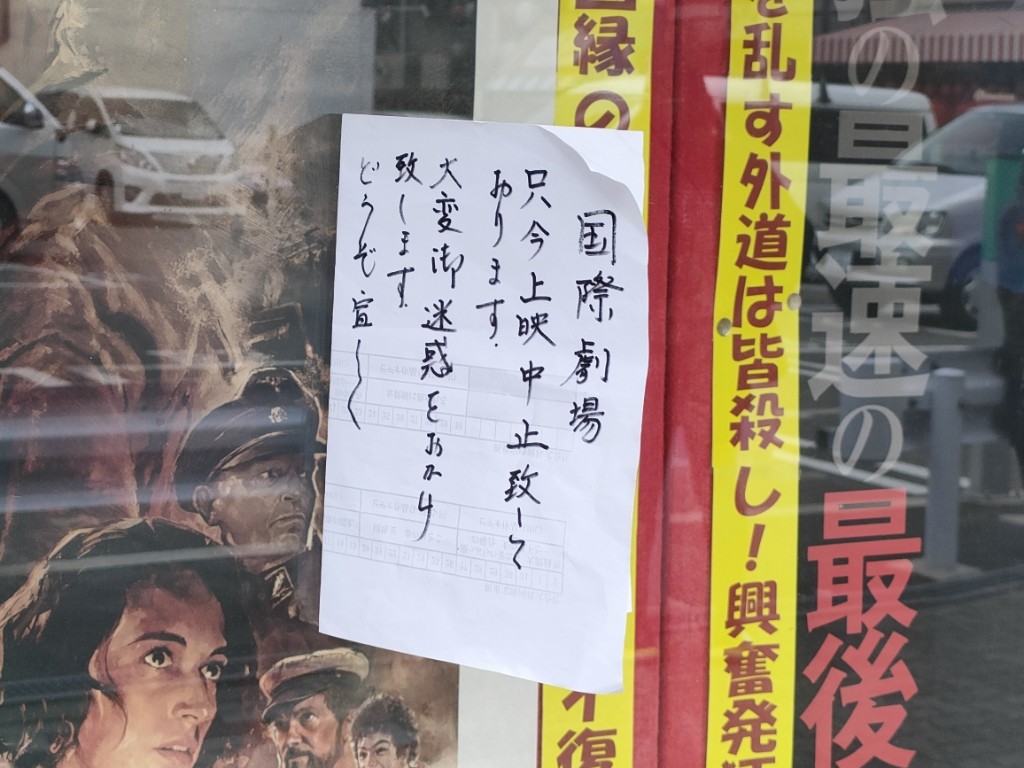 の最速の最後
を乱す外道は皆殺し!興奮発
縁の
復
国際劇場
只今上映中止致して
おります.
大変御迷惑をおかけ
致します.
どうぞ宜しく